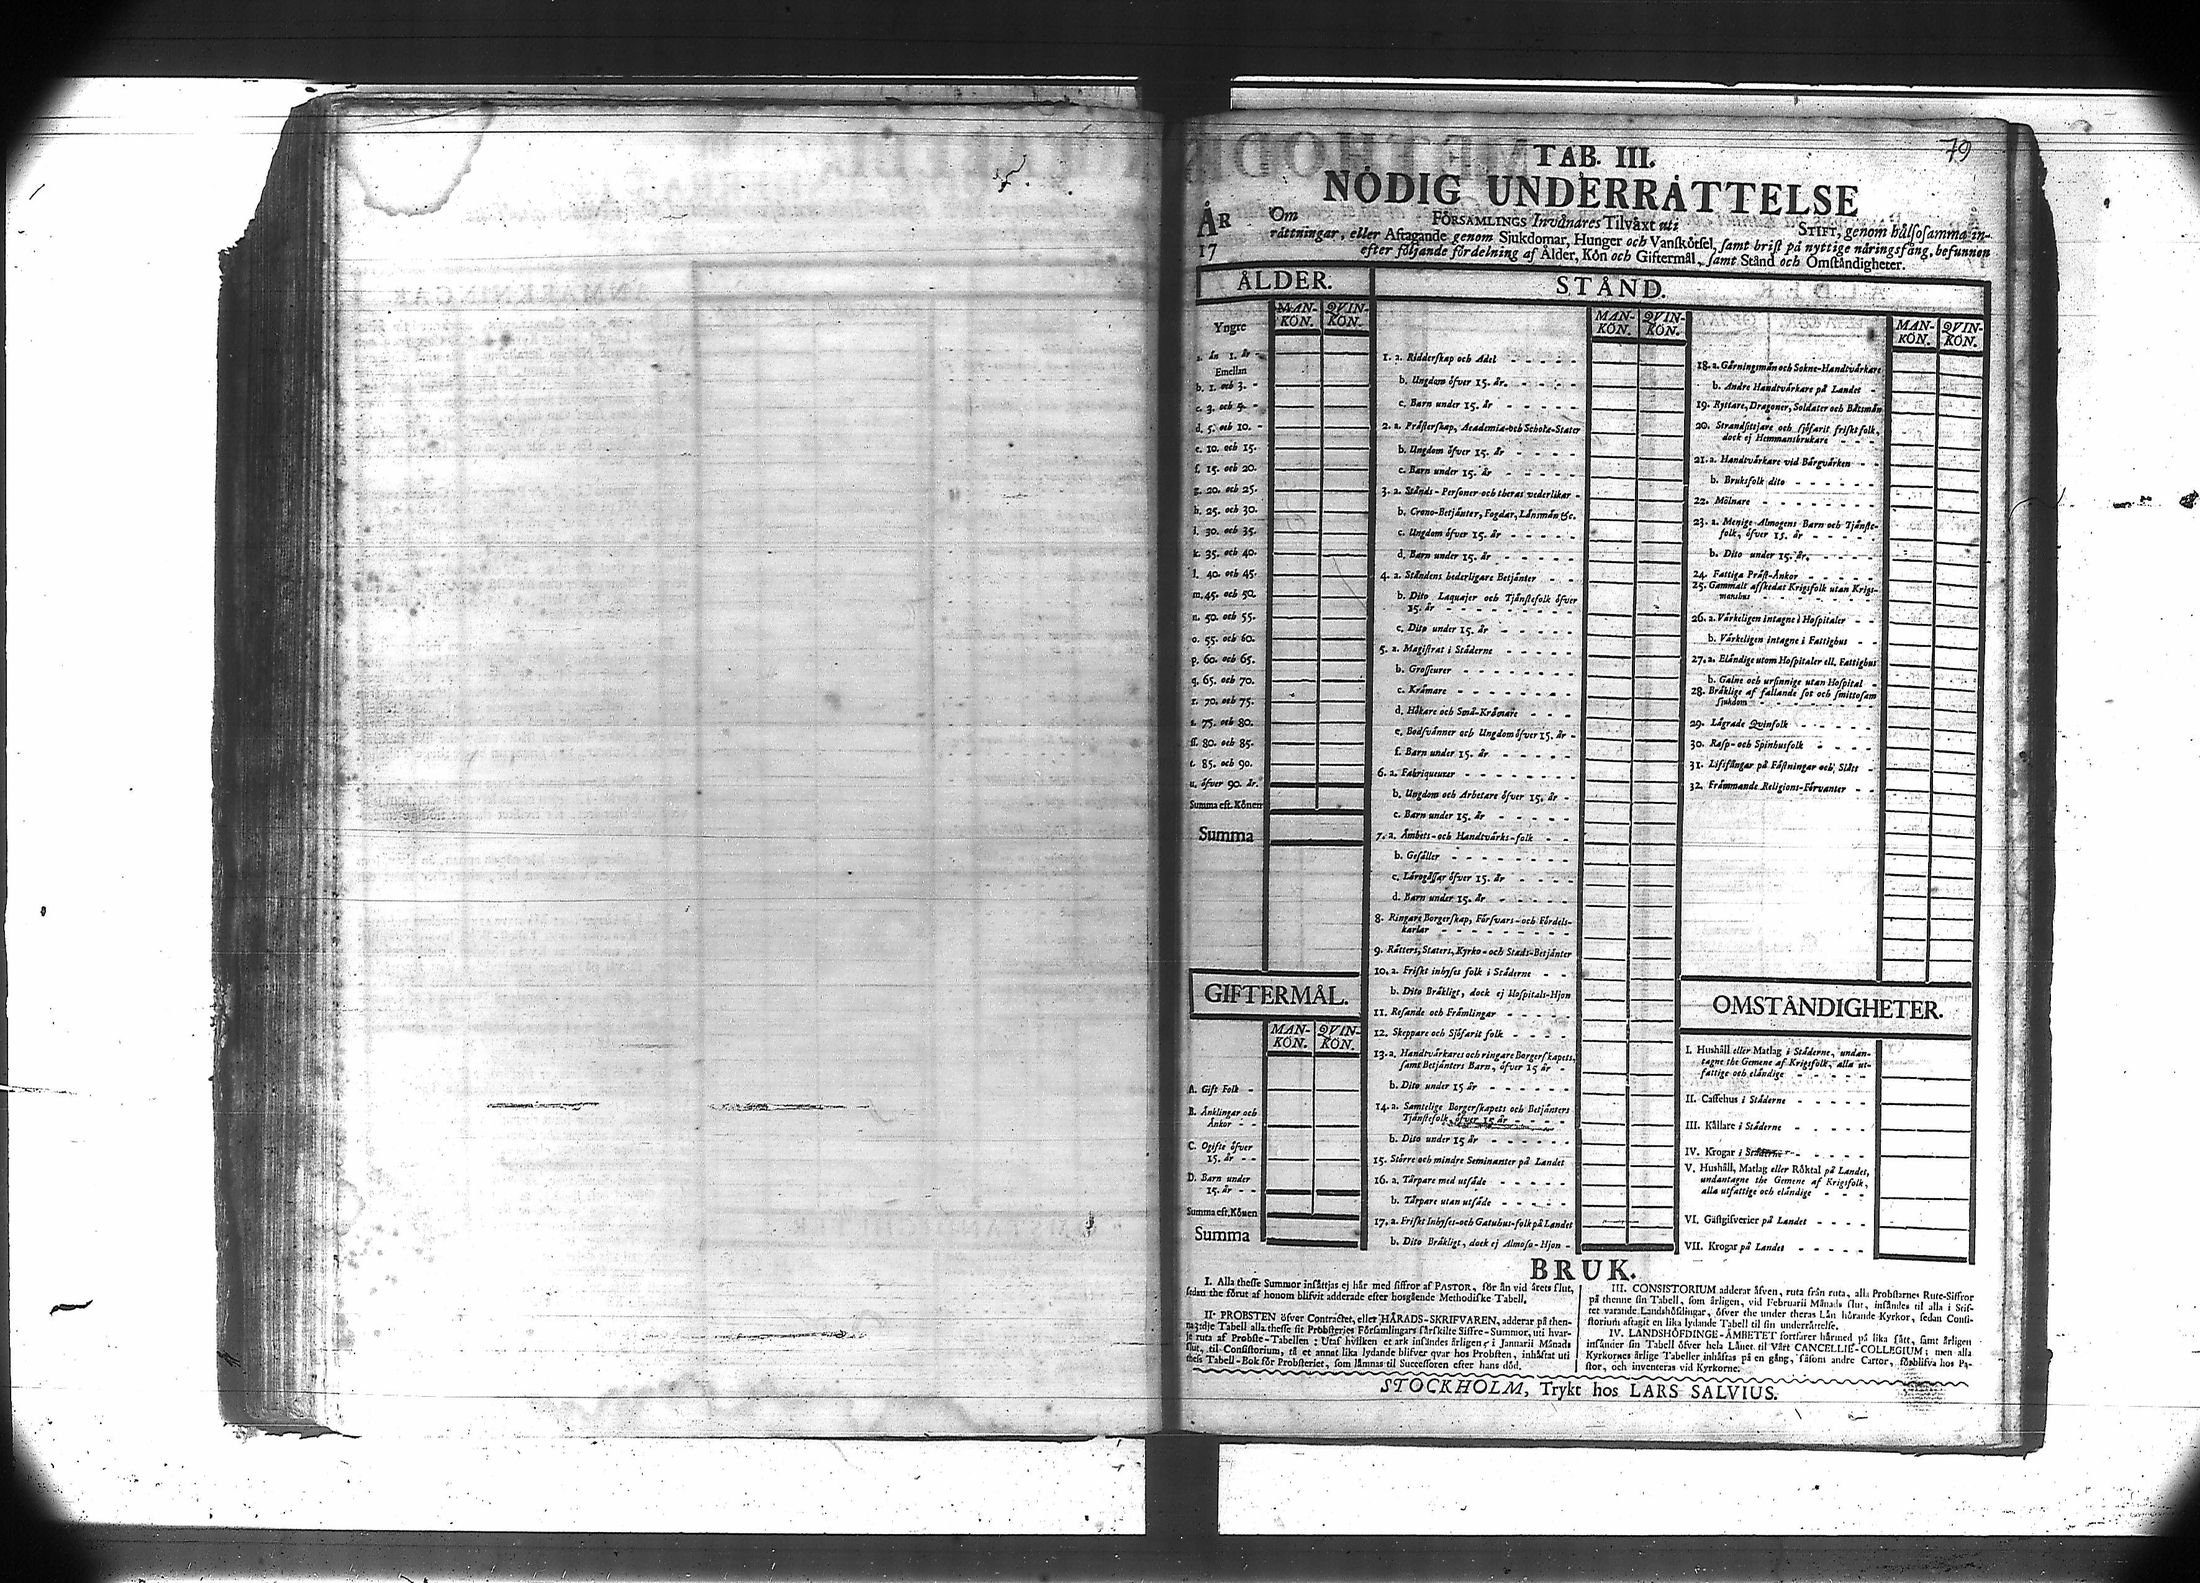 79
TAB. III.
NÖDIG UNDERRÅTTELSE
ÅR
17
Om FÖRSAMLINGS Invånares Tilvåxt uti STIFT, genom hålsosamma in-
råttningar, eller Aftagande genom Sjukdomar, Hunger och Vanskötsel, samt brist på nyttige nåringsfång, befunnen
efter följande fördelning af Ålder, Kön och Giftermål, samt Stånd och Omståndigheter.
ÅLDER.
MAN-KÖN. QVIN-KÖN.
Yngre
a. ån 1. år -
Emellan
b. 1. och 3. -
c. 3. och 5. -
d. 5. och 10. -
e. 10. och 15.
f. 15. och 20.
g. 20. och 25.
h. 25. och 30.
i. 30. och 35.
k. 35. och 40.
l. 40. och 45.
m. 45. och 50.
n. 50. och 55.
o. 55. och 60.
p. 60. och 65.
q. 65. och 70.
r. 70. och 75.
s. 75. och 80.
ss. 80. och 85.
t. 85. och 90.
u. öfver 90. år.
Summa eft. Könen
Summa
GIFTERMÅL.
MAN-KÖN. QVIN-KÖN.
A. Gift Folk -
B. Ånklingar och
Ånkor - -
C. Ogifte öfver
15. år - -
D. Barn under
15. år - -
Summa eft. Könen
Summa
STÅND.
MAN-KÖN. QVIN-KÖN.
1. a. Ridderskap och Adel
b. Ungdom öfver 15. år.
c. Barn under 15. år
2. a. Pråsterskap, Academiæ-och Scholæ-Stater
b. Ungdom öfver 15. år
c. Barn under 15. år
3. a. Stånds-Personer och theras vederlikar
b. Crono-Betjånter, Fogdar, Lånsmån &c.
c. Ungdom öfver 15. år
d. Barn under 15. år
4. a. Ståndens hederligare Betjånter
b. Dito Laquajer och Tjånstefolk öfver
15. år
c. Dito under 15. år
5. a. Magistrat i Ståderne
b. Grosseurer
c. Kråmare
d. Hökare och Små-Kråmare
e. Bodsvånner och Ungdom öfver 15. år
f. Barn under 15. år
6. a. Fabriqueurer
b. Ungdom och Arbetare öfver 15. år
c. Barn under 15. år
7. a. Åmbets-och Handtvårks-folk
b. Gesåller
c. Lårogåssar öfver 15. år
d. Barn under 15. år
8. Ringare Borgerskap, Försvars-och Fördels-
karlar
9. Råtters, Staters, Kyrko-och Stads-Betjånter
10. a. Friskt inhyses folk i Ståderne
b. Dito Bråkligt, dock ej Hospitals-Hjon
11. Resande och Fråmlingar
12. Skeppare och Sjöfarit folk
13. a. Handtvårkares och ringare Borgerskapets,
samt Betjånters Barn, öfver 15 år
b. Dito under 15 år
14. a. Samtelige Borgerskapets och Betjånters
Tjånstefolk, öfver 15 år
b. Dito under 15 år
15. Större och mindre Seminanter på Landet
16. a. Tårpare med utsåde
b. Tårpare utan utsåde
17. a. Friskt Inhyses-och Gatuhus-folk på Landet
b. Dito Bråkligt, dock ej Almoso-Hjon
MAN-KÖN. QVIN-KÖN.
18. a. Gårningsmån och Sokne-Handtvårkare
b. Andre Handtvårkare på Landet
19. Ryttare, Dragoner, Soldater och Båtsmån
20. Strandsittjare och sjöfarit friskt folk,
dock ej Hemmansbrukare
21. a. Handtvårkare vid Bårgvårken
b. Bruksfolk dito
22. Mölnare
23. a. Menige Almogens Barn och Tjånste-
folk, öfver 15. år
b. Dito under 15. år.
24. Fattiga Pråst-Ånkor
25. Gammalt afskedat Krigsfolk utan Krigs-
manshus
26. a. Vårkeligen intagne i Hospitaler
b. Vårkeligen intagne i Fattighus
27. a. Elåndige utom Hospitaler ell. Fattighus
b. Galne och ursinnige utan Hospital
28. Bråklige af fallande sot och smittosam
sjukdom
29. Lågrade Qvinfolk
30. Rasp-och Spinhusfolk
31. Lifsfångar på Fåstningar och Slått
32. Fråmmande Religions-Förvanter
OMSTÅNDIGHETER.
I. Hushåll eller Matlag i Ståderne, undan-
tagne the Gemene af Krigsfolk, alla ut-
fattige och elåndige
II. Caffehus i Ståderne
III. Kållare i Ståderne
IV. Krogar i Ståderne
V. Hushåll, Matlag eller Röktal på Landet,
undantagne the Gemene af Krigsfolk,
alla utfattige och elåndige
VI. Gåstgifverier på Landet
VII. Krogar på Landet
BRUK.
I. Alla thesse Summor insåttjas ej hår med siffror af PASTOR, för ån vid årets slut,
sedan the förut af honom blifvit adderade efter hosgående Methodiske Tabell.
II. PROBSTEN öfver Contractet, eller HÅRADS-SKRIFVAREN, adderar på then-
na 3:dje Tabell alla thesse sit Probsteries Församlingars sårskilte Siffre-Summor, uti hvar-
je ruta af Probste-Tabellen; Utaf hvilken et ark insåndes årligen, i Januarii Månads
slut, til Consistorium, tå et annat lika lydande blifver qvar hos Probsten, inhåftat uti
theß Tabell-Bok för Probsteriet, som låmnas til Successoren efter hans död.
III. CONSISTORIUM adderar åfven, ruta från ruta, alla Probstarnes Rute-Siffror
på thenne sin Tabell, som årligen, vid Februarii Månads slut, insåndes til alla i Stif-
tet varande Landshöfdingar, öfver the under theras Lån hörande Kyrkor, sedan Consi-
storium aftagit en lika lydande Tabell til sin underråttelse.
IV. LANDSHÖFDINGE-ÅMBETET fortfarer hårmed på lika sått, samt årligen
insånder sin Tabell öfver hela Lånet til Vårt CANCELLIE-COLLEGIUM; men alla
Kyrkornes årlige Tabeller inhåftas på en gång, såsom andre Cartor, förblifva hos Pa-
stor, och inventeras vid Kyrkorne.
STOCKHOLM, Trykt hos LARS SALVIUS.